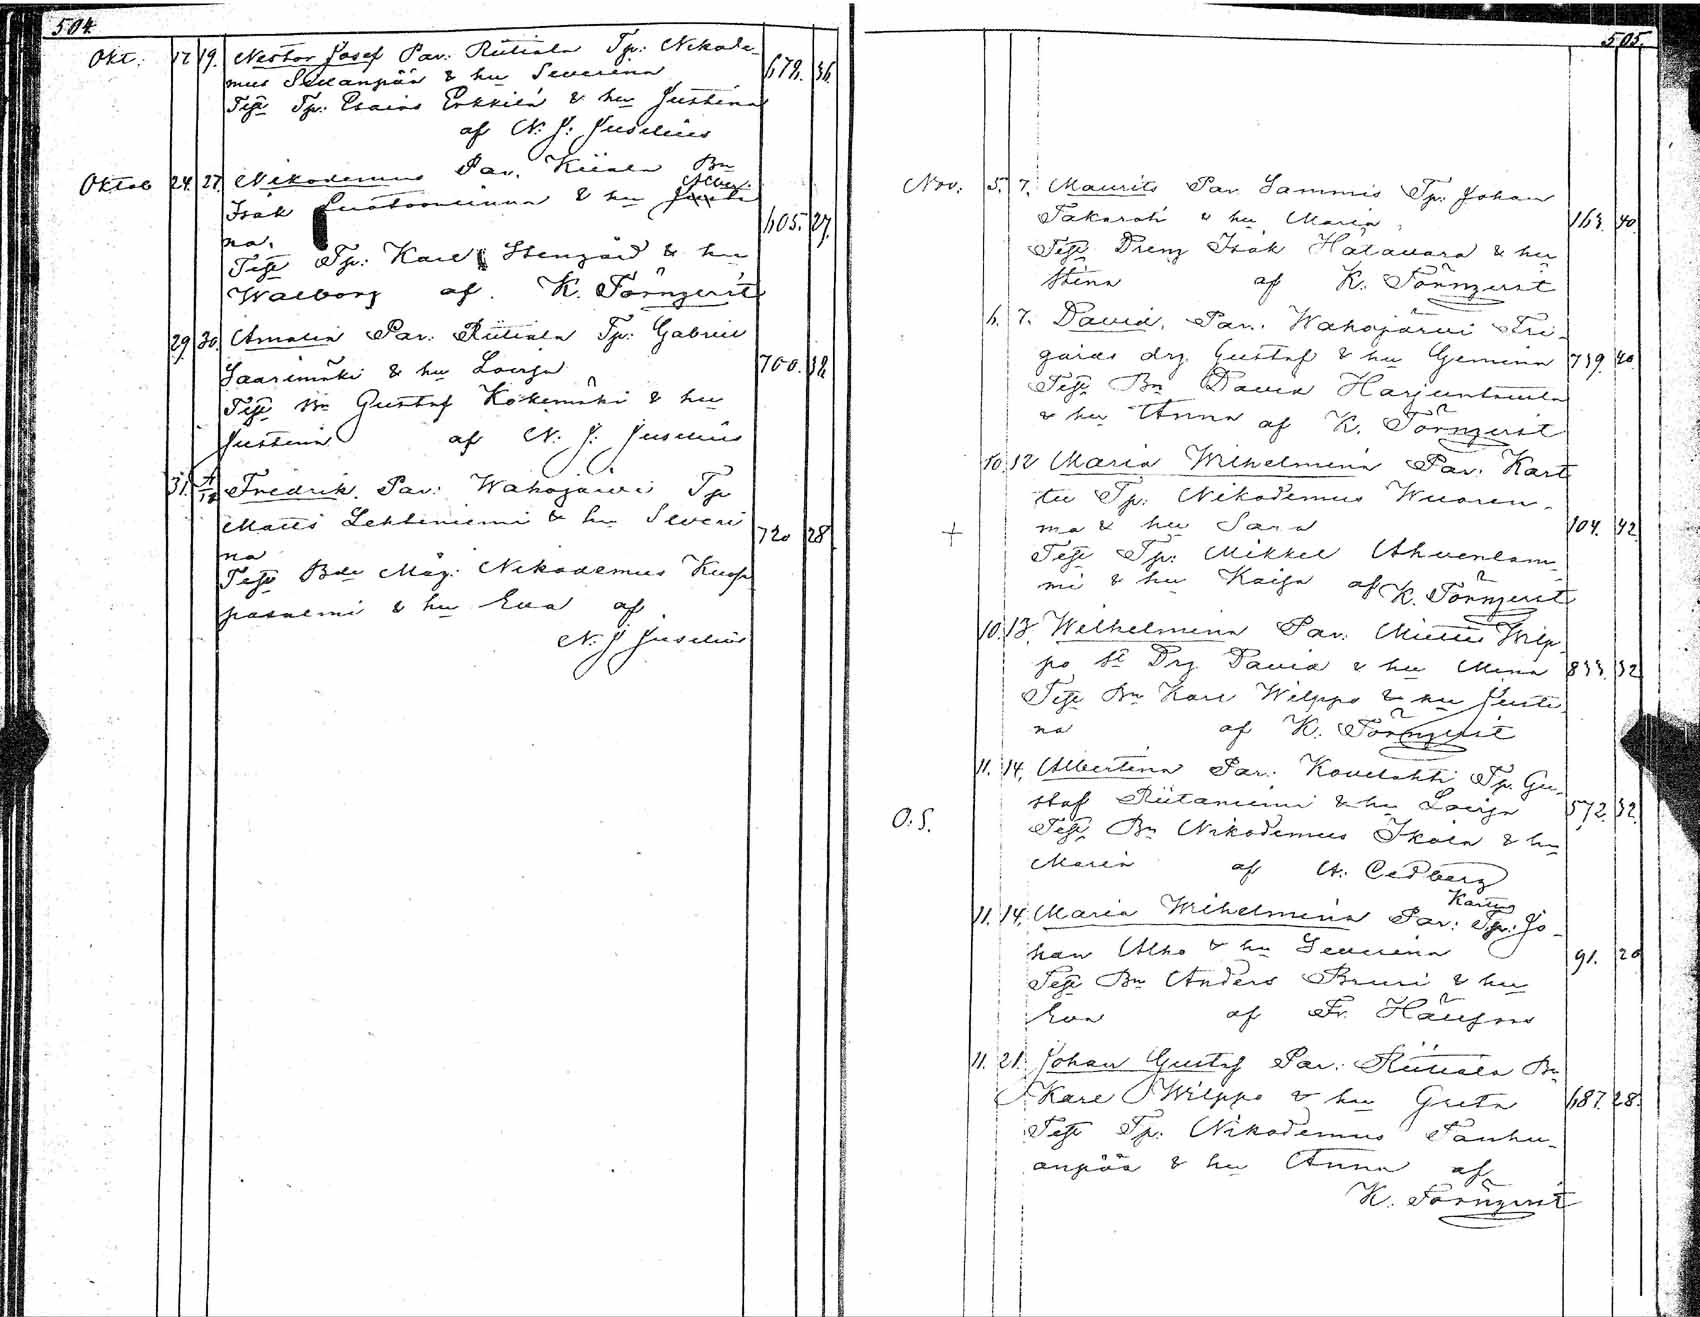 504.
Okt. 17 19. Nestor Josef Par. Riitiala Tp: Nikode-
mus Sillanpää & hu Severina 678. 36.
Test Tp: Esaias Erkkilä & hu Justina
af N. J. Juselius
Oktob 24. 27. Nikodemus Par. Kiiala Bn
Isak & hu Alber
na. 605. 27.
Test Tp: Karl Stengård & hu
Walborg af K. Törnqvist
29. 30. Amalia Par: Riitiala Tp: Gabriel
Saarimäki & hu Lovisa 700. 38.
Test Bn Gustaf Kokemäki & hu
Justina af N. J. Juselius
31. Fredrik. Par: Wahojärvi Tp
Matts Lehtiniemi & hu Severi 720 28
na
Test Nikodemus Kuop
pasalmi & hu Eva af
N. J Juselius
505.
Nov: 5. 7. Maurits Par Lammis Tp: Johan
& hu Maria 163. 40
Test Dreng Isak Hatavara & hu
Stina af K. Törnqvist
6. 7. David. Par. Wahojärvi Fri
gårds drg Gustaf & hu Gemina 739. 40
Test Bn David Harjuntausta
& hu Anna af K. Törnqvist
10. 12 Maria Wilhelmina Par: Kart
tu Tp: Nikodemus Wuoren-
+ ma & hu Sara 104. 42
Test Tp: Mikkel Ahvenlam-
mi & hu Kaisa af K. Törnqvist
10. 13. Wilhelmina Par: Miettu Wilp-
po Drg David & hu Mina 833. 32
Test Bn Karl Wilppo & hu Justi-
na af K. Törnqvist
11. 14. Albertina Par: Kovelahti Tp. Gu-
staf Riitaniemi & hu Lovisa 572. 32.
O.S. Test Bn Nikodemus Ikola & hu
Maria af A: Cedberg
Karttu
11. 14. Maria Wilhelmina Par: Tp: Jo-
han Alho & hu Severina 91. 20
Test Bn Anders Bruri & hu
Eva af Fr.
11. 21. Johan Gustaf Par: Riitiala Bn
Karl Wilppo & hu Greta 687. 28.
Test Tp: Nikodemus Tanhu-
anpää & hu Anna af
K. Törnqvist